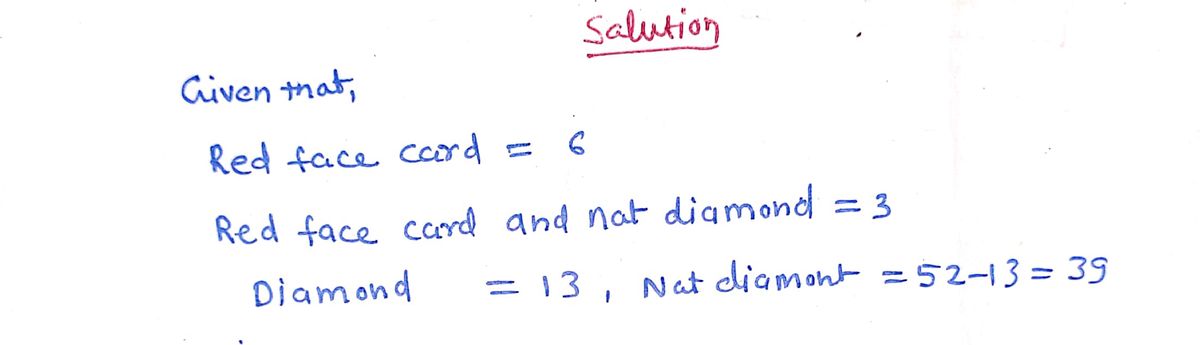 Salution
Given that,
Red face card = 6
Red face card and nat diamond = 3
Diamond = 13, Nat diamont = 52-13 = 39